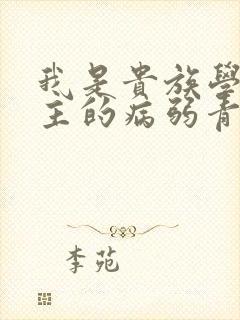 我是貴族學
主的病弱青
李苑